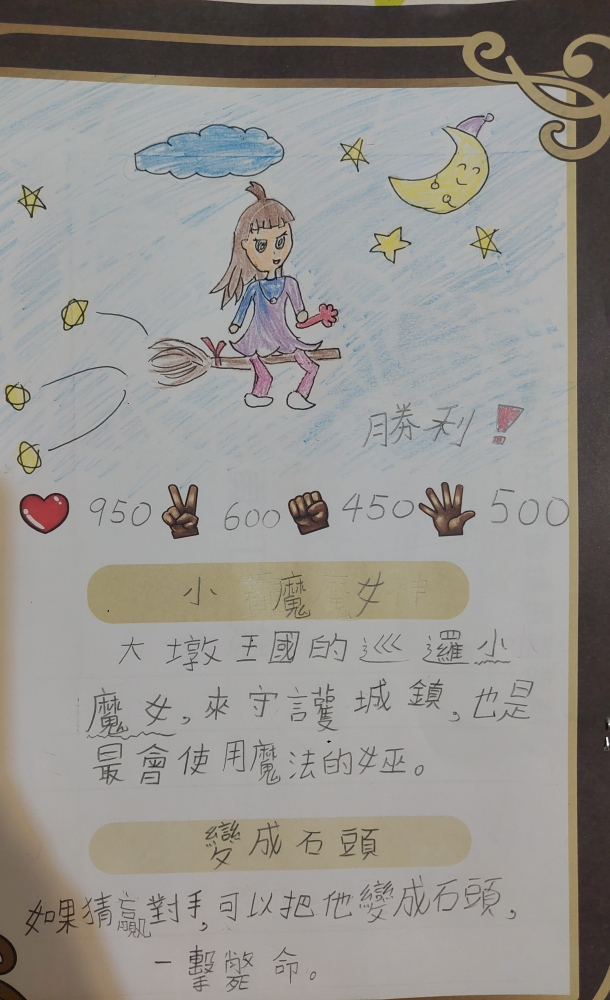 勝利!
950 600 450 500
小魔女
大墩王國的巡邏小
魔女,來守護城鎮,也是
最會使用魔法的女巫。
變成石頭
如果猜贏對手,可以把他變成石頭,
一擊斃命。